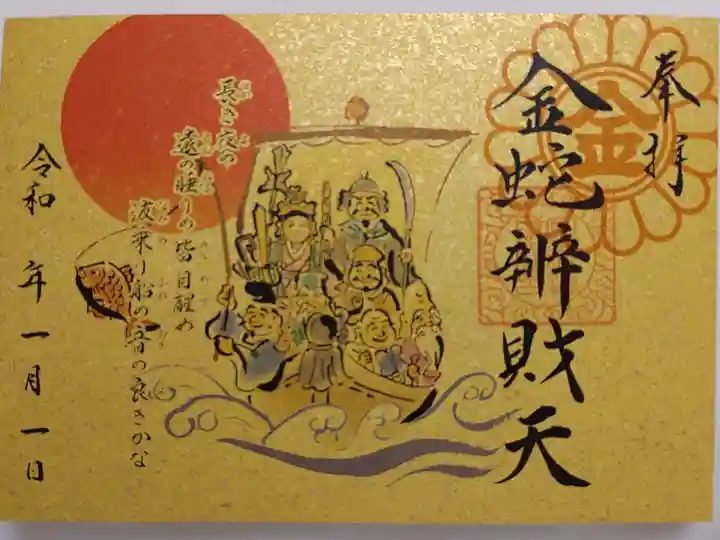 奉拝
金
金蛇辨財天
長き夜の
遠の睡りの皆目醒め
波乗り船の音の良きかな
令和 年一月一日